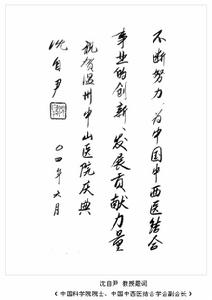 不断努力,为中国中西医结合
事业的创新、发展贡献力量
祝贺温州中山医院庆典
沈自尹
〇四年六月
沈自尹 教授题词
(中国科学院院士、中国中西医结合学会副会长)